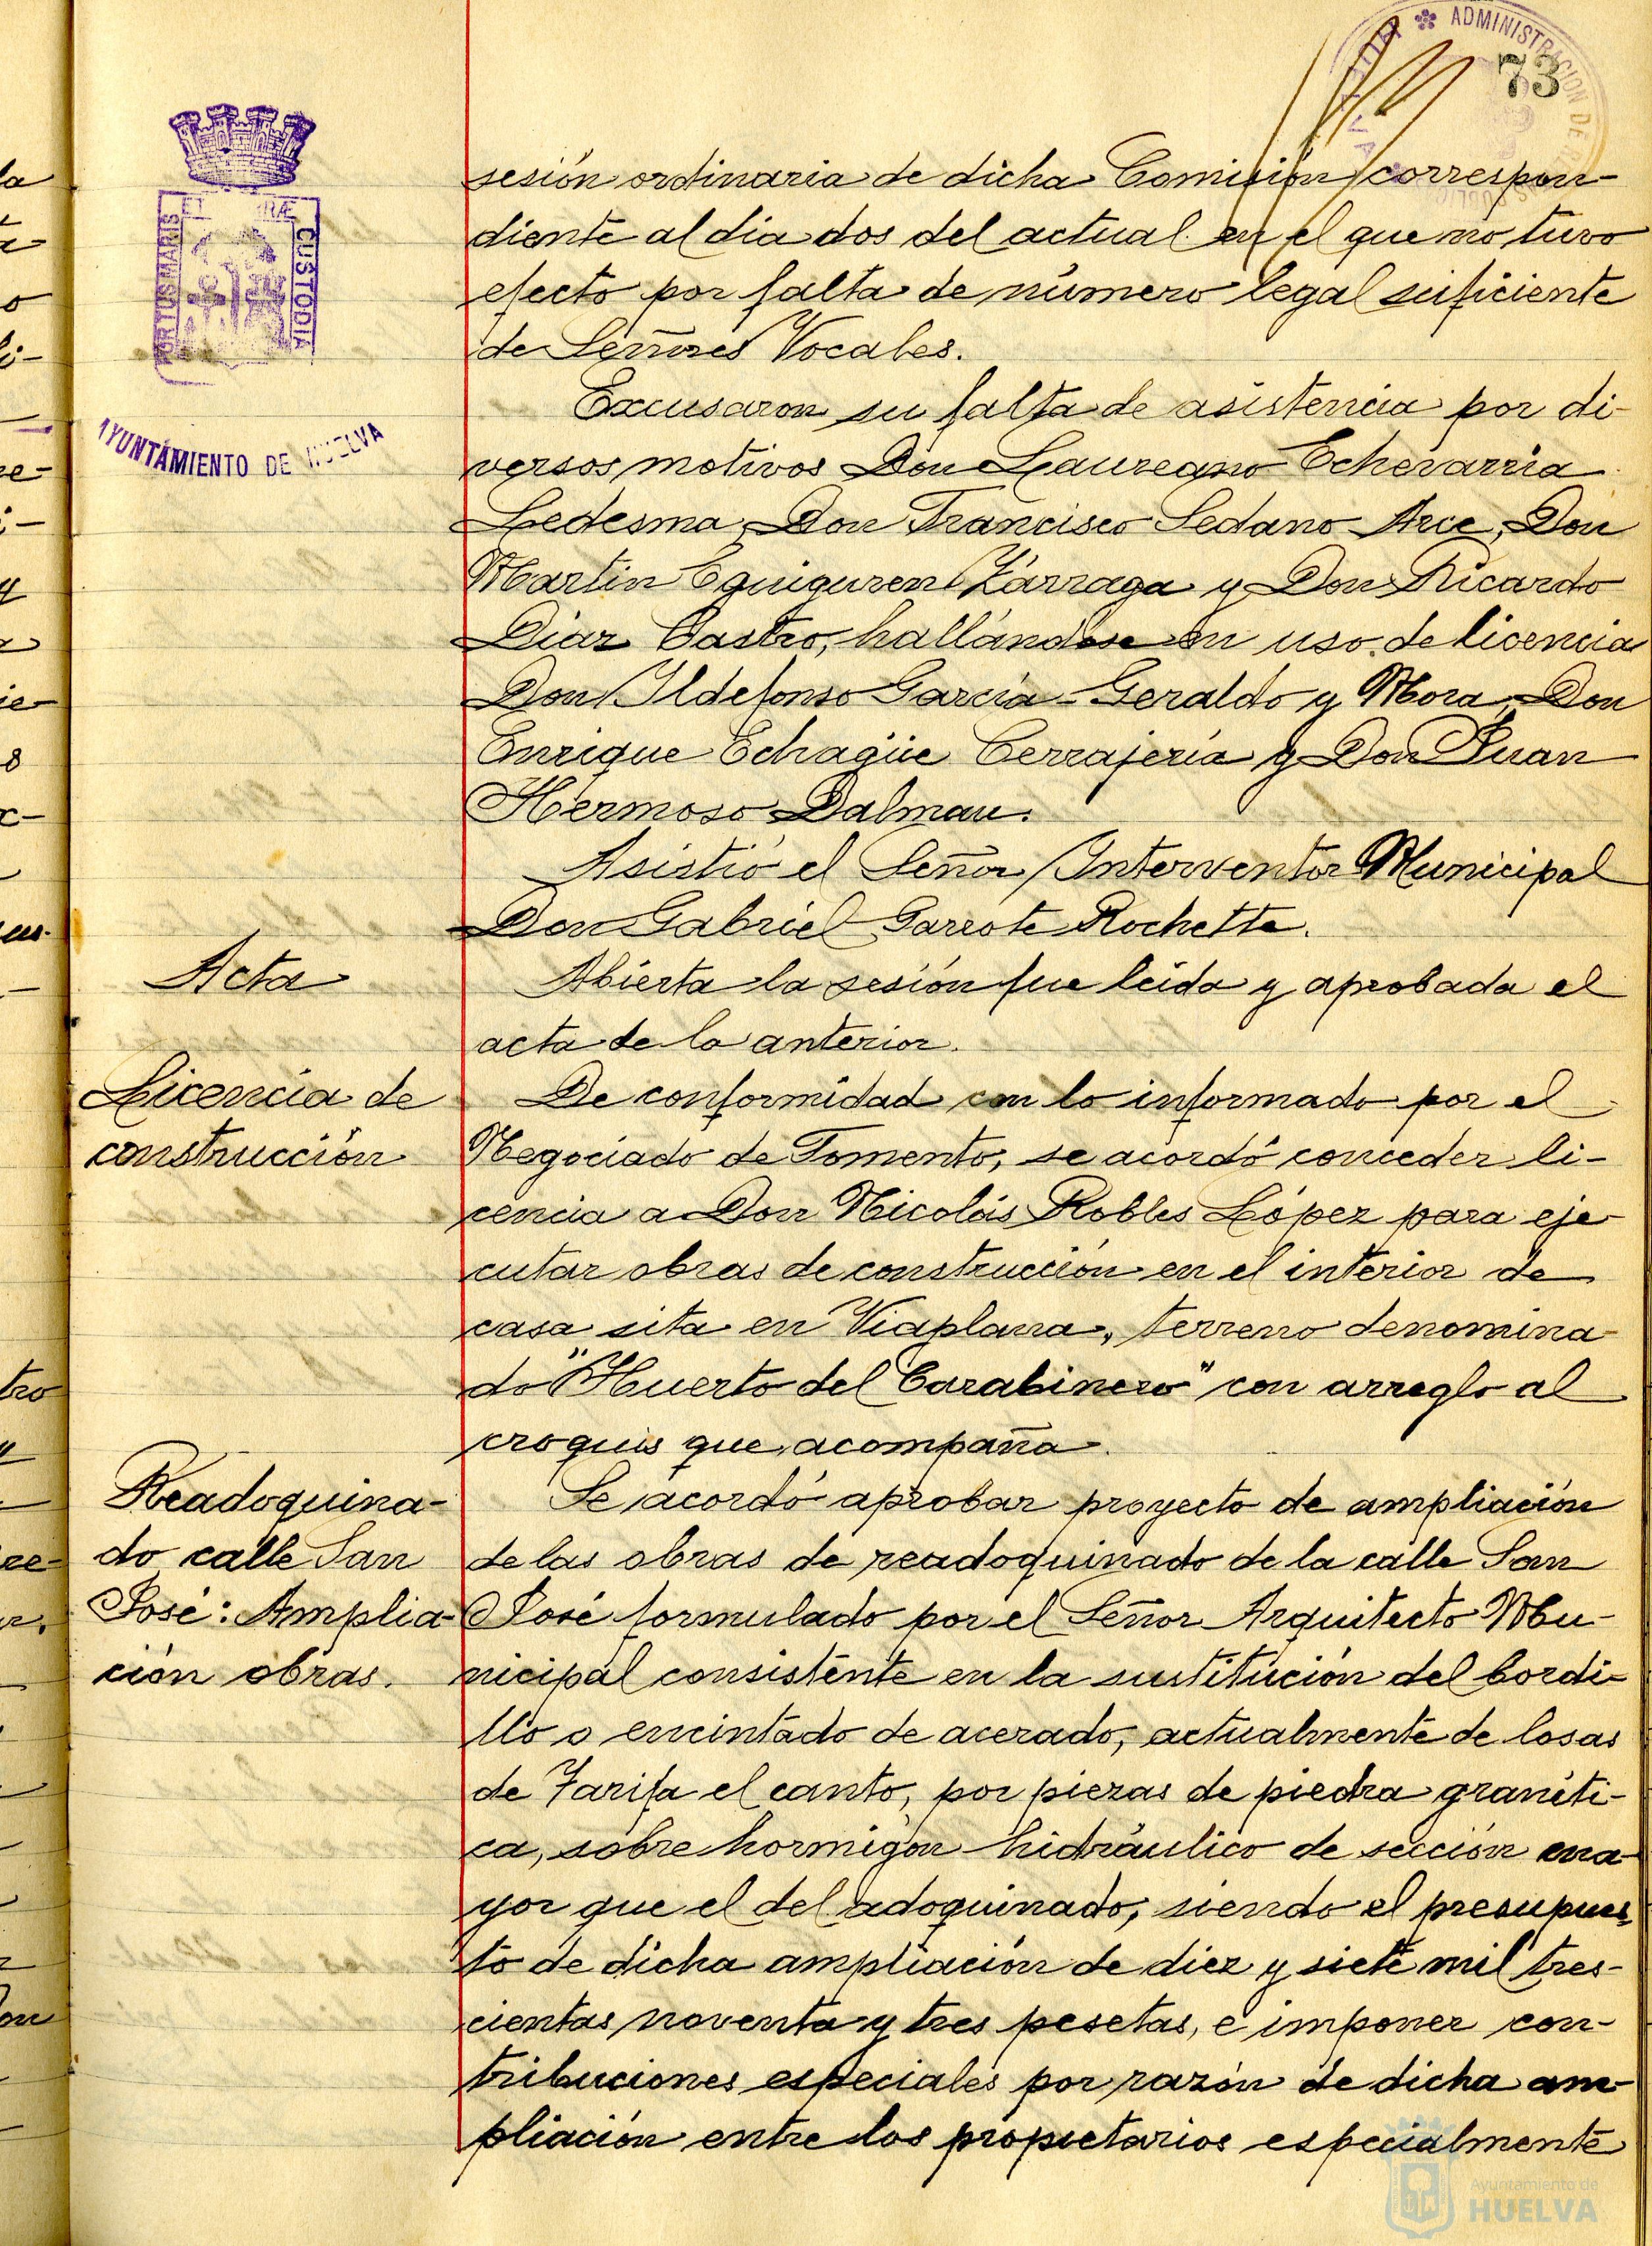 ADMINISTRACION DE
73
PORTUS MARIS
ET
RÆ
CUSTODIA
AYUNTAMIENTO DE HUELVA
sesión ordinaria de dicha Comisión correspon-
diente al dia dos del actual en el que no tuvo
efecto por falta de número legal suficiente
de Señores Vocales.
Excusaron su falta de asistencia por di-
versos motivos Don Laureano Echevarria
Ledesma, Don Francisco Sedano Arce, Don
Martin Eguiguren Zárraga y Don Ricardo
Diaz Castro, hallándose en uso de licencia
Don Ildefonso García-Geraldo y Mora, Don
Enrique Echagüe Cerrajería y Don Juan
Hermoso Dalmau.
Asistió el Señor Interventor Municipal
Don Gabriel Garrote Rochette.
Acta
Abierta la sesión fue leida y aprobada el
acta de la anterior.
Licencia de
construcción
De conformidad con lo informado por el
Negociado de Fomento, se acordó conceder li-
cencia a Don Nicolás Robles López para eje-
cutar obras de construcción en el interior de
casa sita en Viaplana, terreno denomina-
do "Huerto del Carabinero" con arreglo al
croquis que acompaña.
Readoquina-
do calle San
José: Amplia-
ción obras.
Se acordó aprobar proyecto de ampliación
de las obras de readoquinado de la calle San
José formulado por el Señor Arquitecto Mu-
nicipal consistente en la sustitución del bordi-
llo o encintado de acerado, actualmente de losas
de Tarifa el canto, por piezas de piedra graníti-
ca, sobre hormigón hidráulico de sección ma-
yor que el del adoquinado, siendo el presupues-
to de dicha ampliación de diez y siete mil tres-
cientas noventa y tres pesetas, e imponer con-
tribuciones especiales por razón de dicha am-
pliación entre los propietarios especialmente
Ayuntamiento de
HUELVA